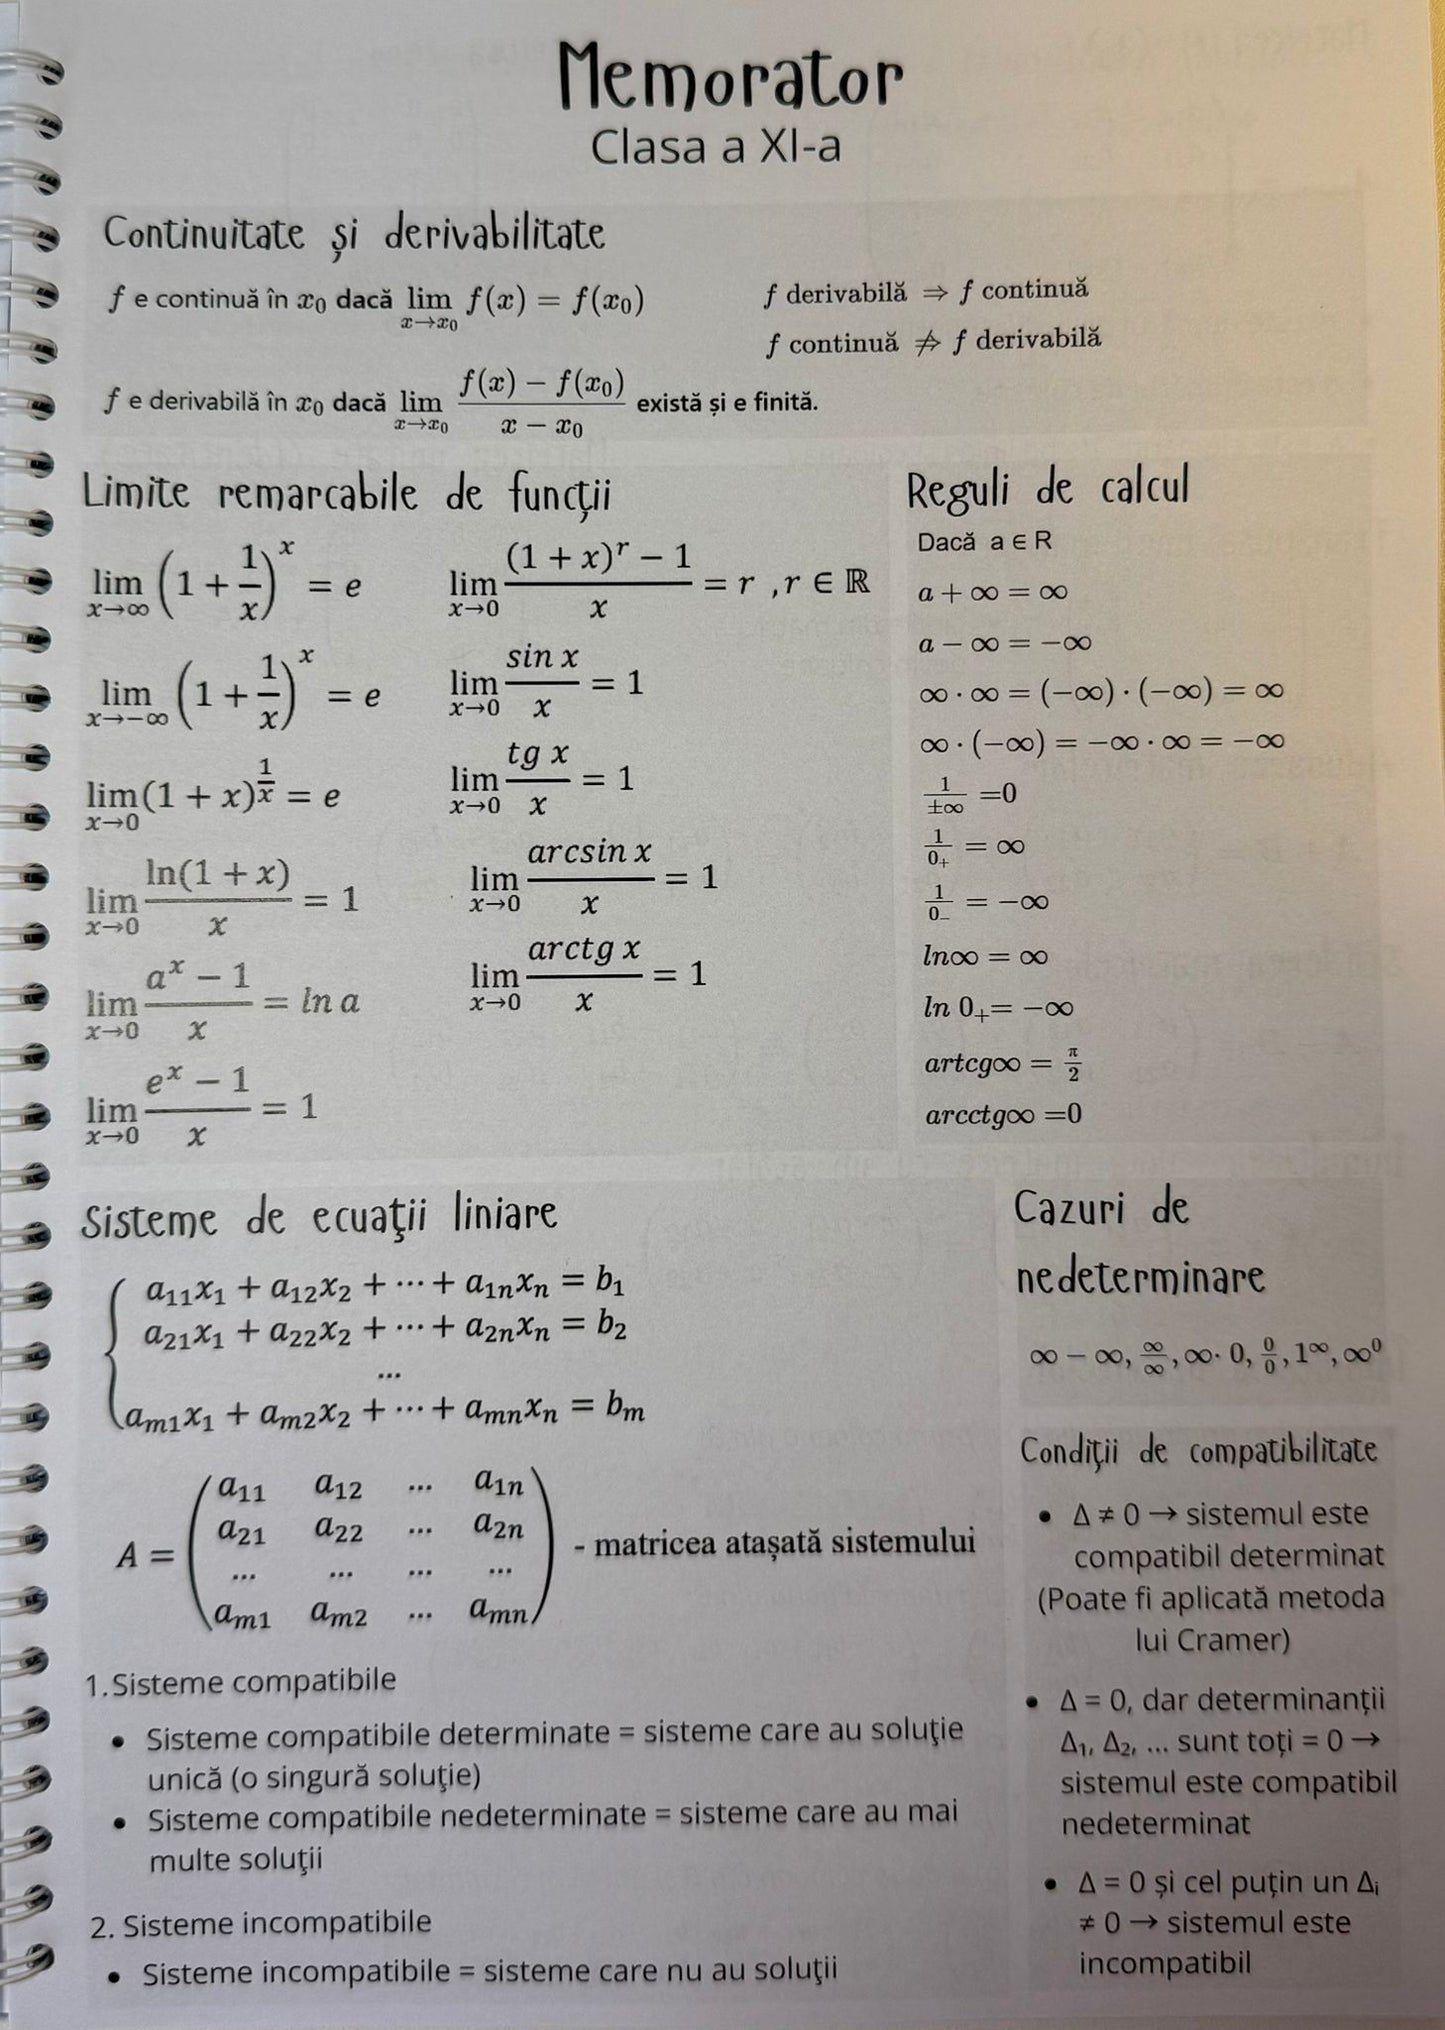 Memorator
Clasa a XI-a
Continuitate și derivabilitate
f e continuă în x₀ dacă lim x→x₀ f(x) = f(x₀)
f derivabilă ⇒ f continuă
f continuă ⇏ f derivabilă
f e derivabilă în x₀ dacă lim x→x₀ (f(x) − f(x₀))/(x − x₀) există și e finită.
Limite remarcabile de funcții
lim x→∞ (1 + 1/x)^x = e
lim x→−∞ (1 + 1/x)^x = e
lim x→0 (1 + x)^(1/x) = e
lim x→0 ln(1 + x)/x = 1
lim x→0 (a^x − 1)/x = ln a
lim x→0 (e^x − 1)/x = 1
lim x→0 ((1 + x)^r − 1)/x = r ,r ∈ ℝ
lim x→0 sin x/x = 1
lim x→0 tg x/x = 1
lim x→0 arcsin x/x = 1
lim x→0 arctg x/x = 1
Reguli de calcul
Dacă a ∈ R
a + ∞ = ∞
a − ∞ = −∞
∞ · ∞ = (−∞) · (−∞) = ∞
∞ · (−∞) = −∞ · ∞ = −∞
1/±∞ =0
1/0₊ = ∞
1/0₋ = −∞
ln∞ = ∞
ln 0₊= −∞
artcg∞ = π/2
arcctg∞ =0
Sisteme de ecuaţii liniare
a₁₁x₁ + a₁₂x₂ + ··· + a₁ₙxₙ = b₁
a₂₁x₁ + a₂₂x₂ + ··· + a₂ₙxₙ = b₂
...
aₘ₁x₁ + aₘ₂x₂ + ··· + aₘₙxₙ = bₘ
A = ( a₁₁ a₁₂ ... a₁ₙ
a₂₁ a₂₂ ... a₂ₙ
... ... ... ...
aₘ₁ aₘ₂ ... aₘₙ ) - matricea atașată sistemului
1.Sisteme compatibile
• Sisteme compatibile determinate = sisteme care au soluţie
unică (o singură soluţie)
• Sisteme compatibile nedeterminate = sisteme care au mai
multe soluţii
2. Sisteme incompatibile
• Sisteme incompatibile = sisteme care nu au soluţii
Cazuri de
nedeterminare
∞ − ∞, ∞/∞, ∞· 0, 0/0, 1^∞, ∞⁰
Condiţii de compatibilitate
• Δ ≠ 0 → sistemul este
compatibil determinat
(Poate fi aplicată metoda
lui Cramer)
• Δ = 0, dar determinanții
Δ₁, Δ₂, ... sunt toți = 0 →
sistemul este compatibil
nedeterminat
• Δ = 0 și cel puțin un Δᵢ
≠ 0 → sistemul este
incompatibil